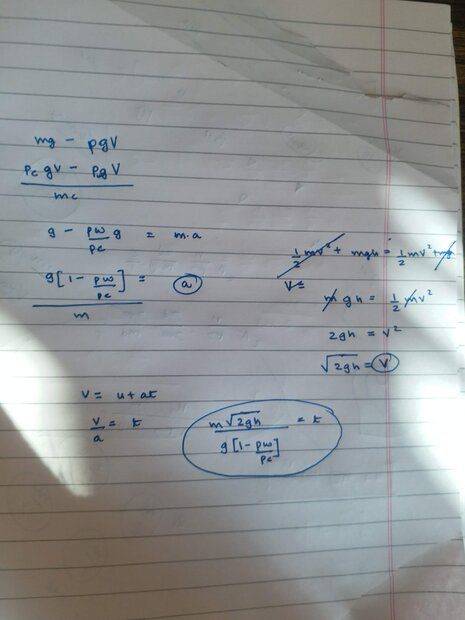 mg - ρgV
ρc gV - ρw gV
mc
g - ρw/ρc g = m.a
g[1 - ρw/ρc] = a
m
1/2 mv² + mgh = 1/2 mv² + mg
V =
mgh = 1/2 mv²
2gh = v²
√2gh = V
V = u + at
V/a = t
m√2gh / g[1 - ρw/ρc] = t